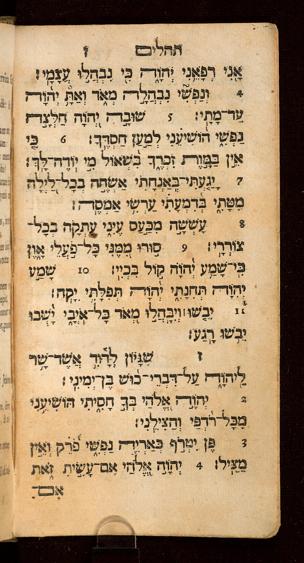 תהלים ו
אָ֥נִי רְפָאֵ֥נִי יְהוָ֑ה כִּ֖י נִבְהֲל֣וּ עֲצָמָֽי׃
4 וְ֭נַפְשִׁי נִבְהֲלָ֣ה מְאֹ֑ד וְאַתָּ֥ה יְ֝הוָ֗ה
עַד־מָתָֽי׃ 5 שׁוּבָ֣ה יְ֭הוָה חַלְּצָ֣ה
נַפְשִׁ֑י ה֝וֹשִׁיעֵ֗נִי לְמַ֣עַן חַסְדֶּֽךָ׃ 6 כִּ֤י
אֵ֣ין בַּמָּ֣וֶת זִכְרֶ֑ךָ בִּ֝שְׁא֗וֹל מִ֣י יֽוֹדֶה־לָּֽךְ׃
7 יָגַ֤עְתִּי־בְּֽאַנְחָתִ֗י אַשְׂחֶ֣ה בְכָל־לַ֭יְלָה
מִטָּתִ֑י בְּ֝דִמְעָתִ֗י עַרְשִׂ֥י אַמְסֶֽה׃
8 עָֽשְׁשָׁ֣ה מִכַּ֣עַס עֵינִ֑י עָֽ֝תְקָ֗ה בְּכָל־
צוֹרְרָֽי׃ 9 ס֣וּרוּ מִ֭מֶּנִּי כָּל־פֹּ֣עֲלֵי אָ֑וֶן
כִּֽי־שָׁמַ֥ע יְ֝הוָ֗ה ק֣וֹל בִּכְיִֽי׃ 10 שָׁמַ֣ע
יְ֭הוָה תְּחִנָּתִ֑י יְ֝הוָ֗ה תְּֽפִלָּתִ֥י יִקָּֽח׃
11 יֵבֹ֤שׁוּ וְיִבָּהֲל֣וּ מְ֭אֹד כָּל־אֹיְבָ֑י יָ֝שֻׁ֗בוּ
יֵבֹ֥שׁוּ רָֽגַע׃
ז שִׁגָּי֗וֹן לְדָ֫וִ֥ד אֲשֶׁר־שָׁ֥ר
לַיהוָ֑ה עַל־דִּבְרֵי־כ֝֗וּשׁ בֶּן־יְמִינִֽי׃
2 יְהוָ֣ה אֱ֭לֹהַי בְּךָ֣ חָסִ֑יתִי ה֝וֹשִׁיעֵ֗נִי
מִכָּל־רֹדְפַ֥י וְהַצִּילֵֽנִי׃
3 פֶּן־יִטְרֹ֣ף כְּאַרְיֵ֣ה נַפְשִׁ֑י פֹּ֝רֵ֗ק וְאֵ֣ין
מַצִּֽיל׃ 4 יְהוָ֣ה אֱ֭לֹהַי אִם־עָשִׂ֣יתִי זֹ֑את
אִֽם־